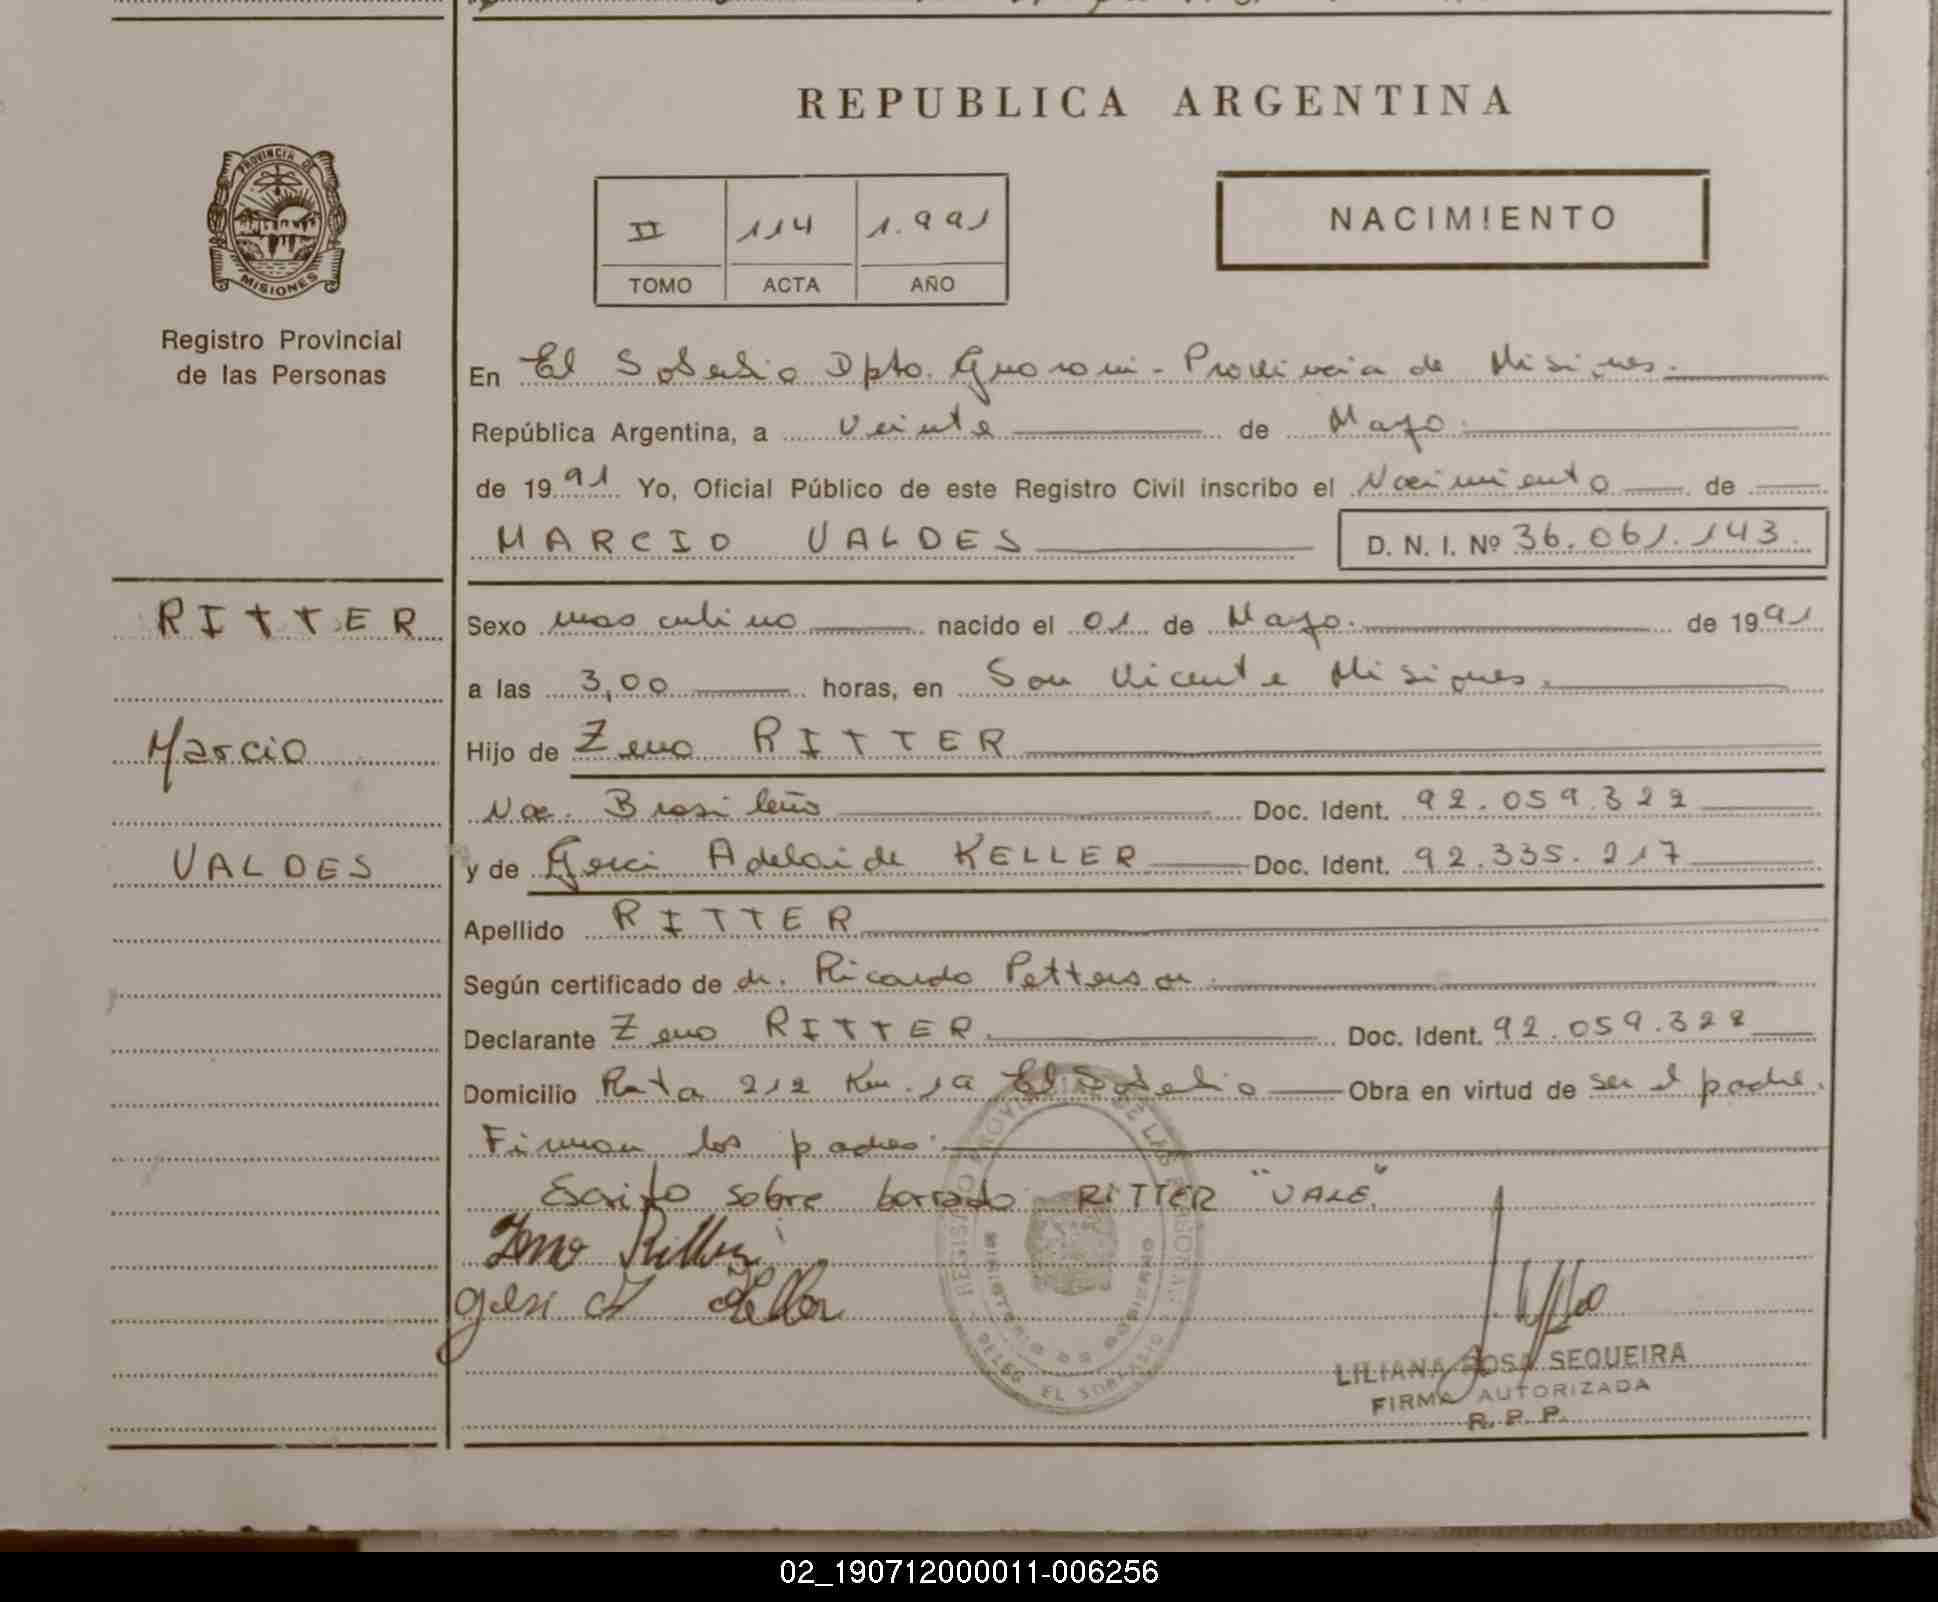 REPUBLICA ARGENTINA
PROVINCIA DE
MISIONES
Registro Provincial
de las Personas
II 114 1.991
TOMO ACTA AÑO
NACIMIENTO
En El Soberbio Dpto. Guarani - Provincia de Misiones.
República Argentina, a veinte de Mayo
de 1991 Yo, Oficial Público de este Registro Civil inscribo el Nacimiento de
MARCIO VALDES D. N. I. Nº 36.061.143.
RITTER
Marcio
VALDES
Sexo masculino nacido el 01 de Mayo. de 1991
a las 3,00 horas, en San Vicente Misiones.
Hijo de Zeno RITTER
Nac. Brasileño Doc. Ident. 92.059.322
y de Adelaide KELLER Doc. Ident. 92.335.217
Apellido RITTER
Según certificado de dr. Ricardo Petterson.
Declarante Zeno RITTER. Doc. Ident. 92.059.322
Domicilio Ruta 212 Km. 19 El Soberbio Obra en virtud de ser el padre.
Firman los padres.
Escrito sobre borrado RITTER "VALE."
Zeno Ritter
Keller
REGISTRO PROVINCIAL DE LAS PERSONAS
MINISTERIO DE GOBIERNO
DELEG. EL SOBERBIO
LILIANA ROSA SEQUEIRA
FIRMA AUTORIZADA
R. P. P.
02_190712000011-006256